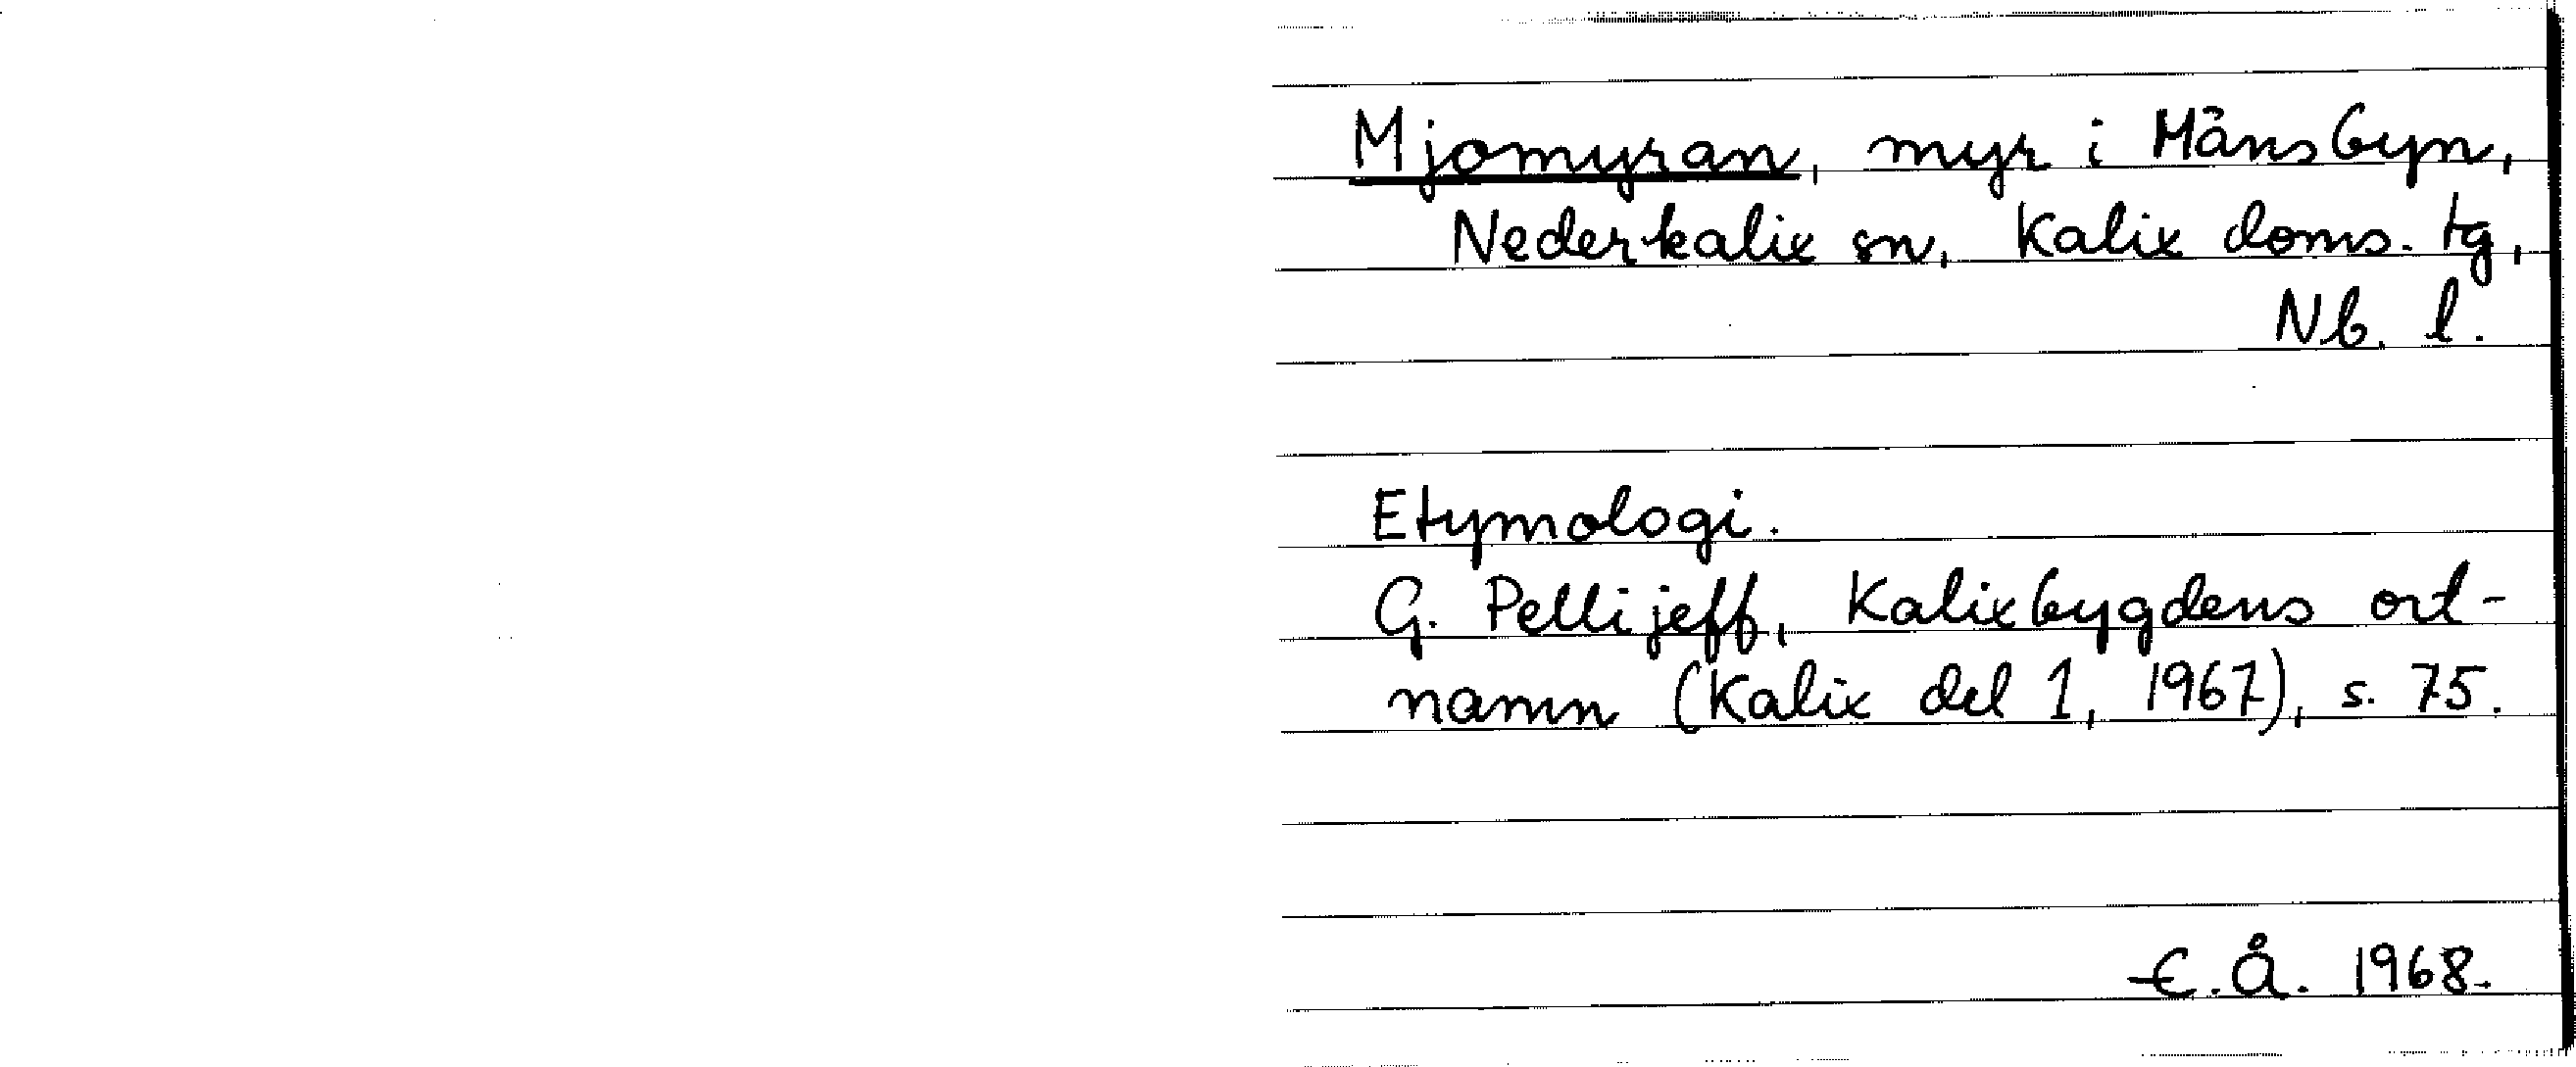 Mjomyran, myr i Månsbyn,
Nederkalix sn, Kalix doms. tg,
Nb. l.
Etymologi.
G. Pellijeff, Kalixbygdens ort-
namn (Kalix del 1, 1967), s. 75.
E.Å. 1968.